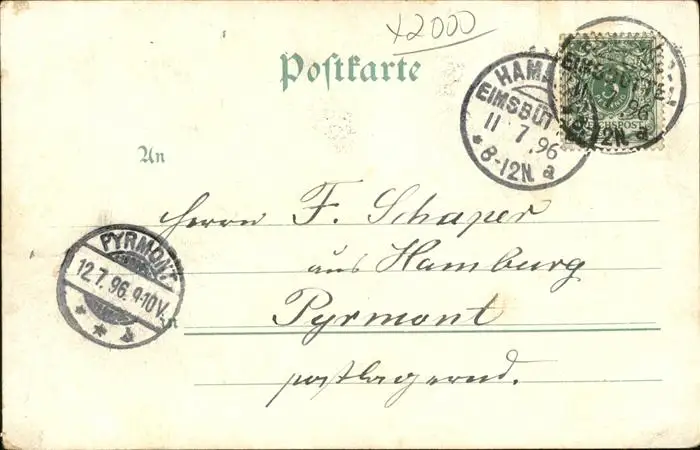 x2000
Postkarte
HAMB
EIMSBÜT
11 7 .96
* 8-12N. a
EIMSBÜTTE
11 7 .96
8-12N. a
REICHSPOST
An
Herrn F. Schaper
aus Hamburg
PYRMONT
12.7.96.9-10V.
* * b
in Pyrmont
postlagernd.